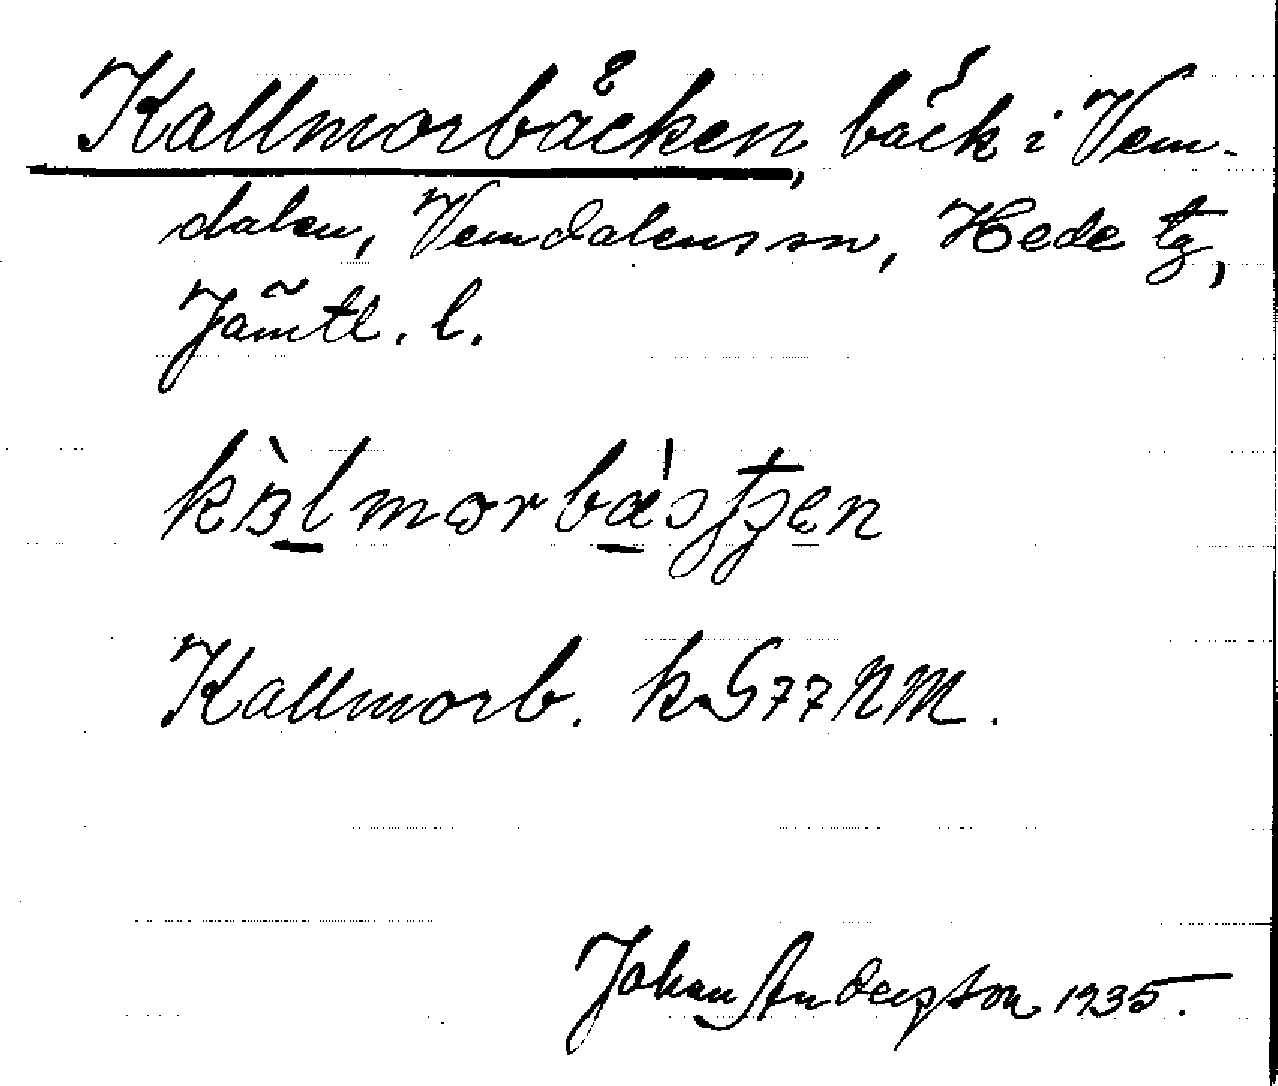 Kallmorbäcken, bäck i Vem-
dalen, Vemdalens sn, Hede tg,
Jämtl. l.
Kallmorb. k. G77NM.
Johan Anderson 1935.